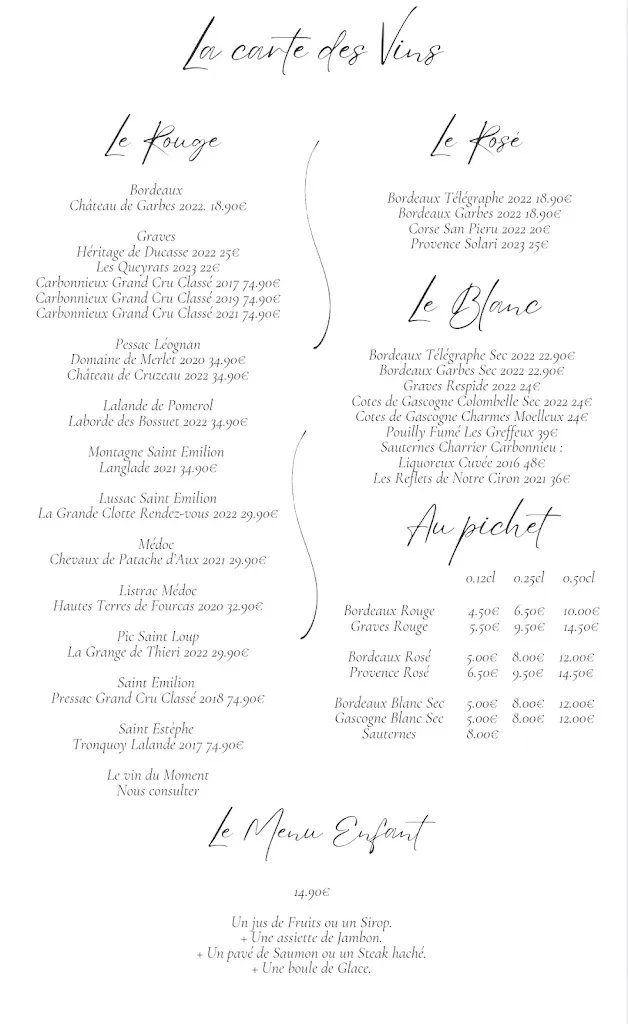 La carte des Vins
Le Rouge
Bordeaux
Château de Garbes 2022. 18.90€
Graves
Héritage de Ducasse 2022 25€
Les Queyrats 2023 22€
Carbonnieux Grand Cru Classé 2017 74.90€
Carbonnieux Grand Cru Classé 2019 74.90€
Carbonnieux Grand Cru Classé 2021 74.90€
Pessac Léognan
Domaine de Merlet 2020 34.90€
Château de Cruzeau 2022 34.90€
Lalande de Pomerol
Laborde des Bossuet 2022 34.90€
Montagne Saint Emilion
Langlade 2021 34.90€
Lussac Saint Emilion
La Grande Clotte Rendez-vous 2022 29.90€
Médoc
Chevaux de Patache d'Aux 2021 29.90€
Listrac Médoc
Hautes Terres de Fourcas 2020 32.90€
Pic Saint Loup
La Grange de Thieri 2022 29.90€
Saint Emilion
Pressac Grand Cru Classé 2018 74.90€
Saint Estèphe
Tronquoy Lalande 2017 74.90€
Le vin du Moment
Nous consulter
Le Rosé
Bordeaux Télégraphe 2022 18.90€
Bordeaux Garbes 2022 18.90€
Corse San Pieru 2022 20€
Provence Solari 2023 25€
Le Blanc
Bordeaux Télégraphe Sec 2022 22.90€
Bordeaux Garbes Sec 2022 22.90€
Graves Respide 2022 24€
Cotes de Gascogne Colombelle Sec 2022 24€
Cotes de Gascogne Charmes Moelleux 24€
Pouilly Fumé Les Greffeux 39€
Sauternes Charrier Carbonnieu :
Liquoreux Cuvée 2016 48€
Les Reflets de Notre Ciron 2021 36€
Au pichet
0.12cl 0.25cl 0.50cl
Bordeaux Rouge 4.50€ 6.50€ 10.00€
Graves Rouge 5.50€ 9.50€ 14.50€
Bordeaux Rosé 5.00€ 8.00€ 12.00€
Provence Rosé 6.50€ 9.50€ 14.50€
Bordeaux Blanc Sec 5.00€ 8.00€ 12.00€
Gascogne Blanc Sec 5.00€ 8.00€ 12.00€
Sauternes 8.00€
Le Menu Enfant
14.90€
Un jus de Fruits ou un Sirop.
+ Une assiette de Jambon.
+ Un pavé de Saumon ou un Steak haché.
+ Une boule de Glace.